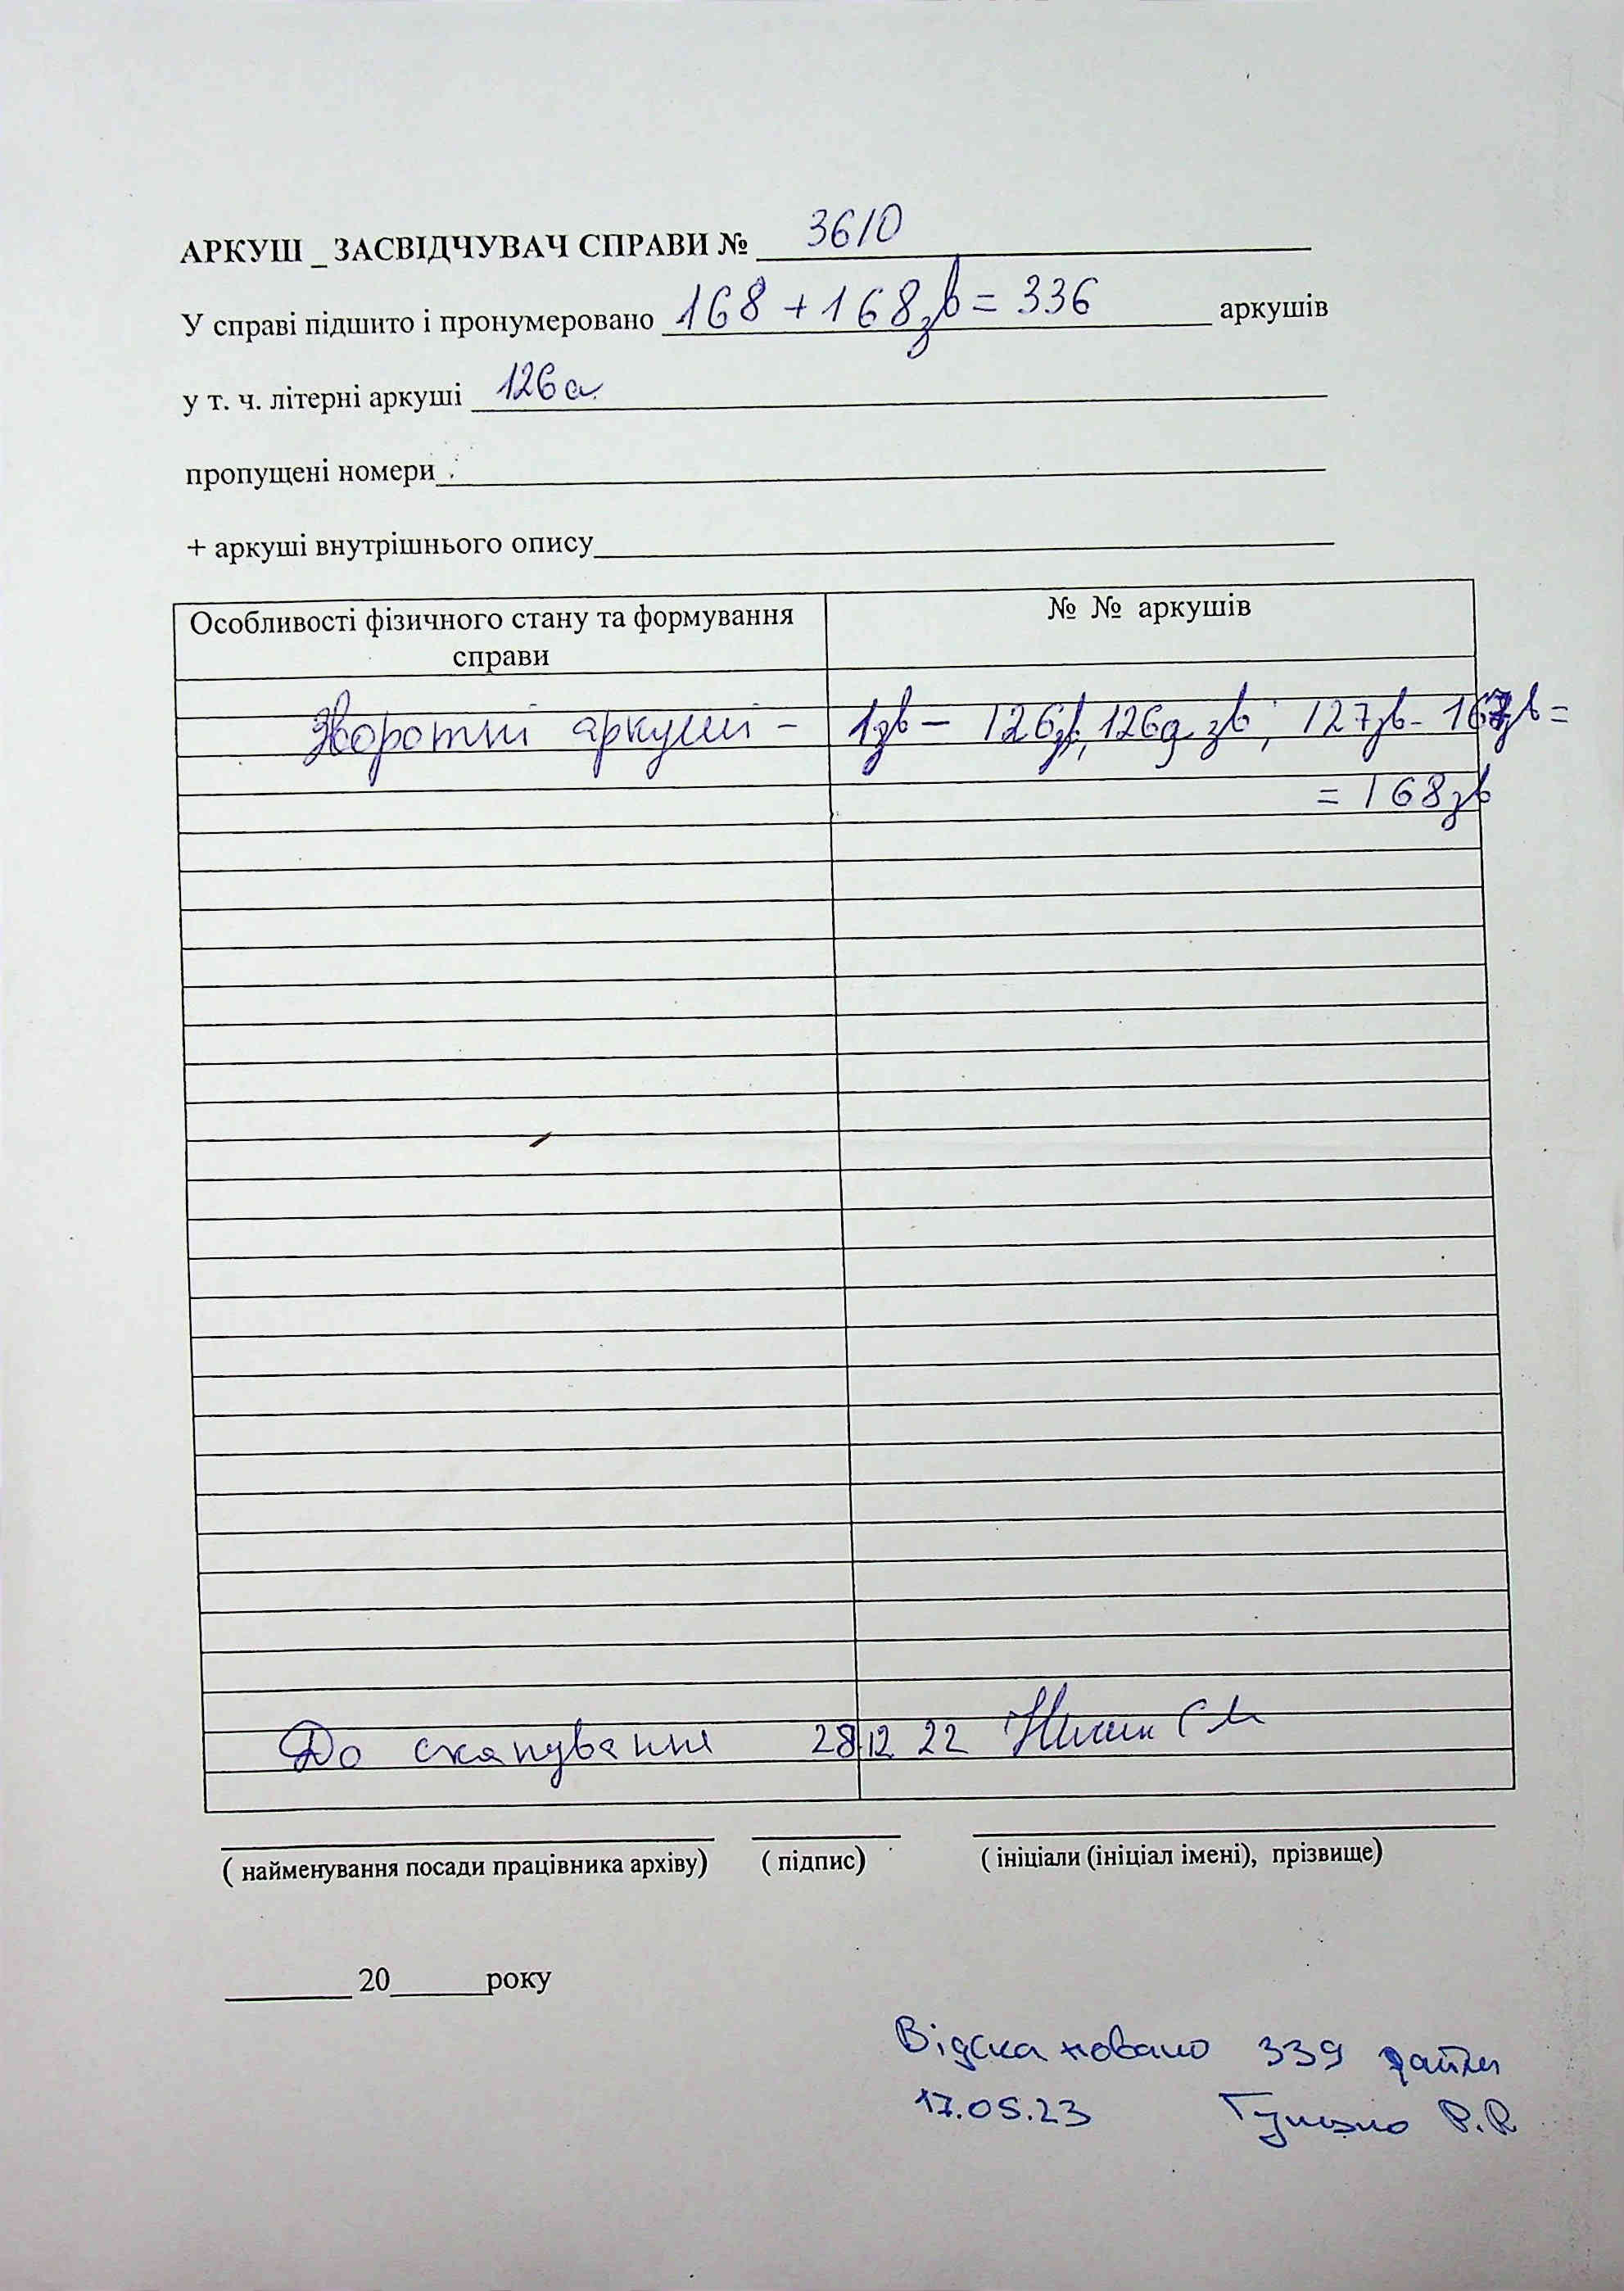 АРКУШ _ ЗАСВІДЧУВАЧ СПРАВИ № 3610
У справі підшито і пронумеровано 168 + 168зв = 336 аркушів
у т. ч. літерні аркуші 126а
пропущені номери
+ аркуші внутрішнього опису
Особливості фізичного стану та формування справи
№ № аркушів
Зворотні аркуші – 1зв – 126зв, 126а зв; 127зв - 167зв =
= 168зв
До сканування 28.12 22
( найменування посади працівника архіву) ( підпис) ( ініціали (ініціал імені), прізвище)
20 року
Відскановано 339 файли
17.05.23 Р.Р